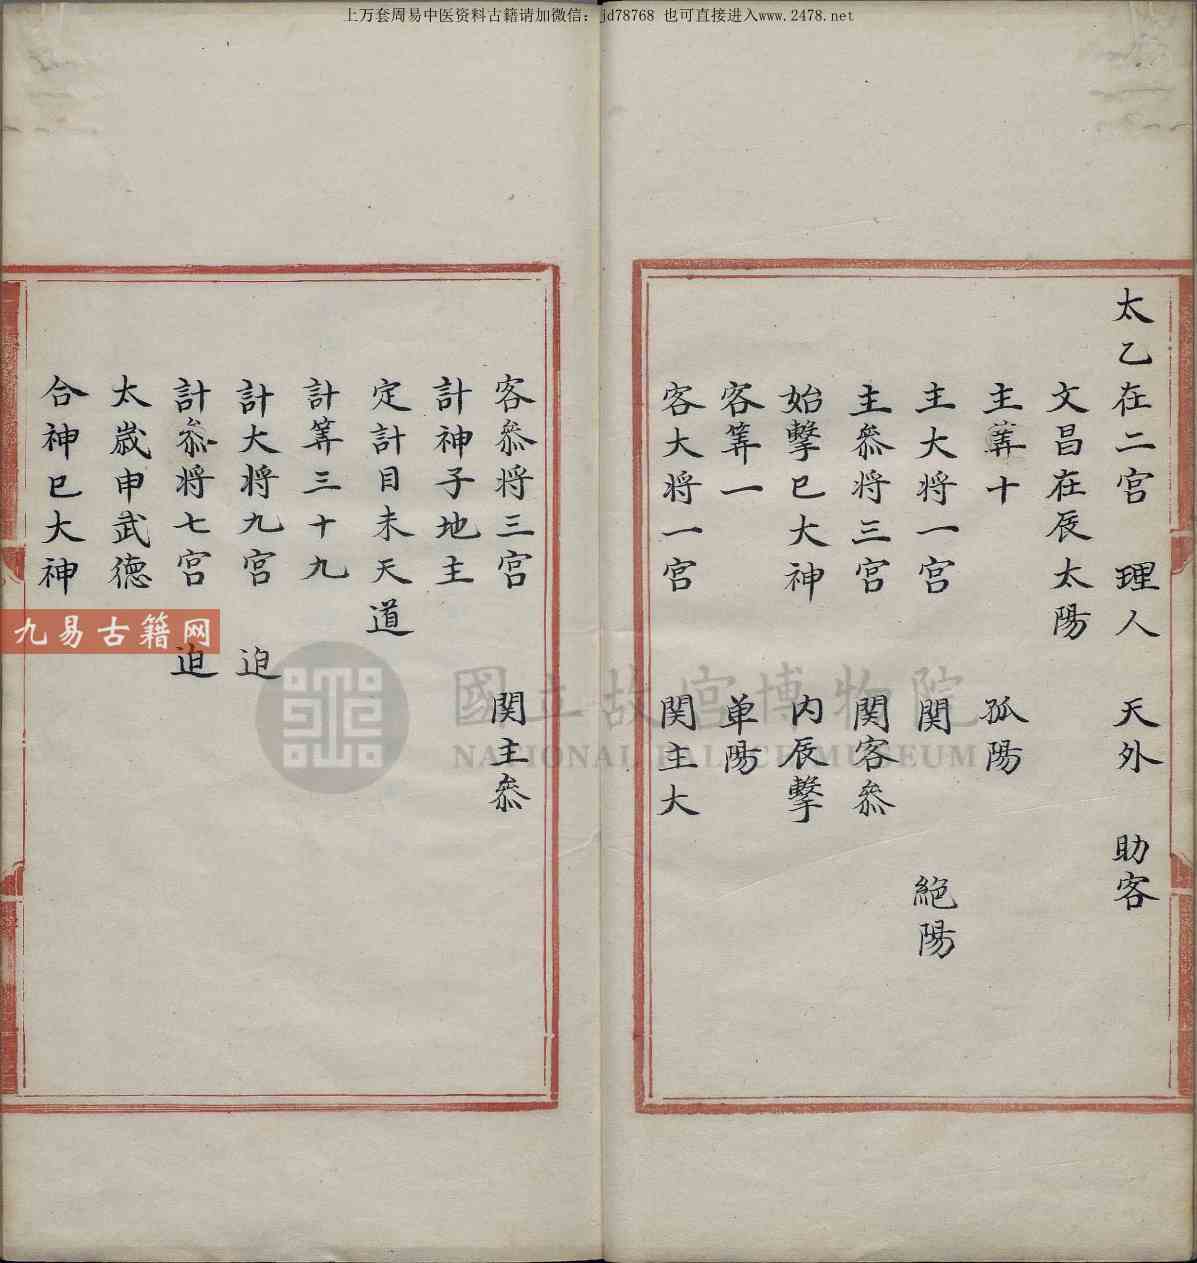 上万套周易中医资料古籍请加微信：jd78768 也可直接进入www.2478.net
太乙在二宫 理人 天外 助客
文昌在辰太陽
主筭十 孤陽
主大将一宫 関 絶陽
主叅将三宫 関客叅
始擊巳大神 内辰擊
客筭一 单陽
客大将一宫 関主大
客叅将三宫 関主叅
計神子地主
定計目未天道
計筭三十九
計大将九宫 迫
計叅将七宫 迫
太歳申武德
合神巳大神
九易古籍网
國立故宫博物院
NATIONAL PALACE MUSEUM